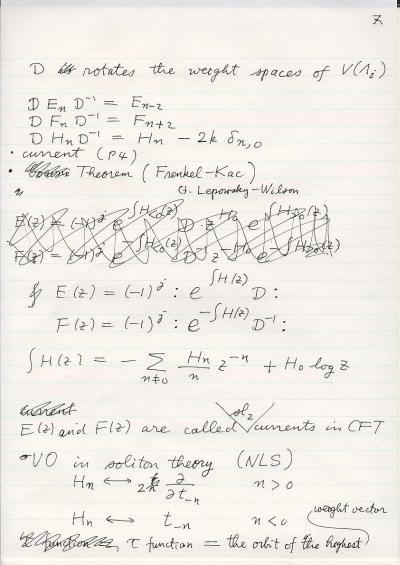 7.
D rotates the weight spaces of V(Λi)
D En D⁻¹ = En-2
D Fn D⁻¹ = Fn+2
D Hn D⁻¹ = Hn - 2k δn,0
• current (P4)
• Theorem (Frenkel-Kac)
cf. Lepowsky-Wilson
E(z) = (-1)^j : e^{∫H(z)} D :
F(z) = (-1)^j : e^{-∫H(z)} D⁻¹ :
∫H(z) = - Σ_{n≠0} Hn/n z^{-n} + H0 log z
E(z) and F(z) are called sl2 currents in CFT
VO in soliton theory (NLS)
Hn ↔ 2n ∂/∂t-n n > 0
Hn ↔ t-n n < 0
τ function = the orbit of the highest weight vector